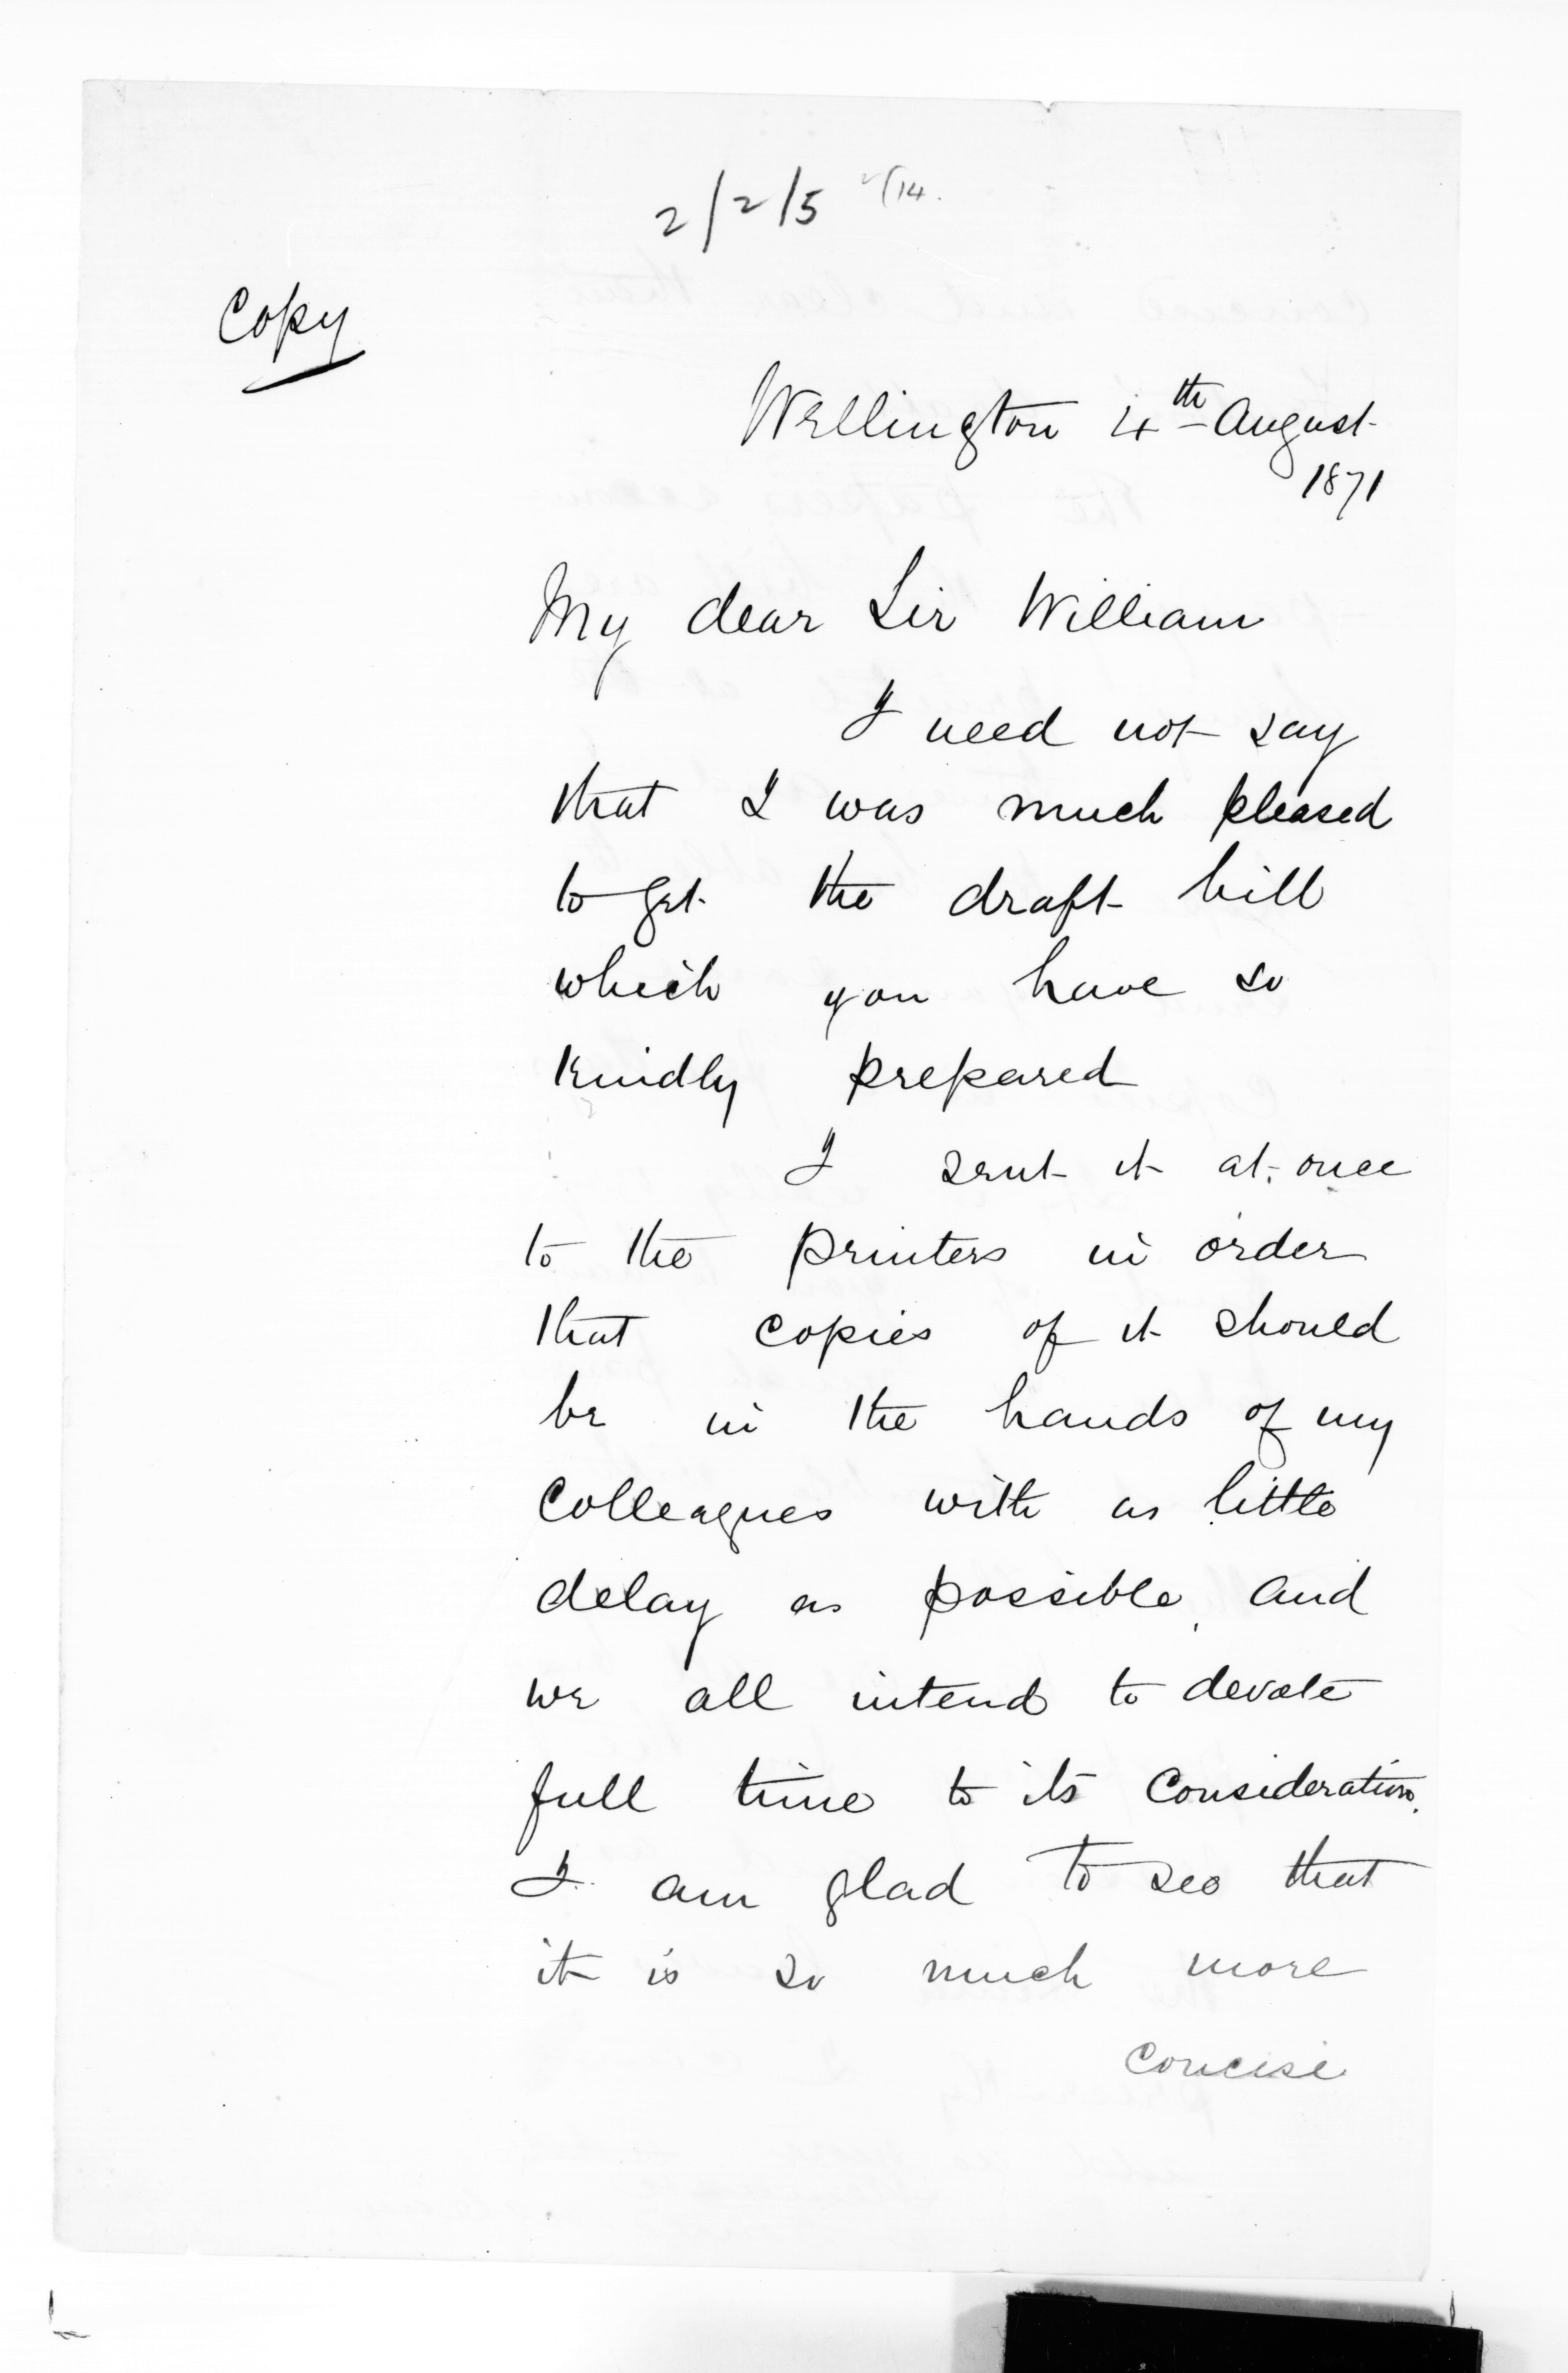 2/2/5
Copy
Wellington 4th August
1871
My dear Sir William
I need not say
that I was much pleased
to get the draft bill
which you have so
kindly prepared
I sent it at once
to the printers in order
that copies of it should
be in the hands of my
Colleagues with as little
delay as possible, and
we all intend to devote
full time to its Consideration.
I am glad to see that
it is so much more
Concise